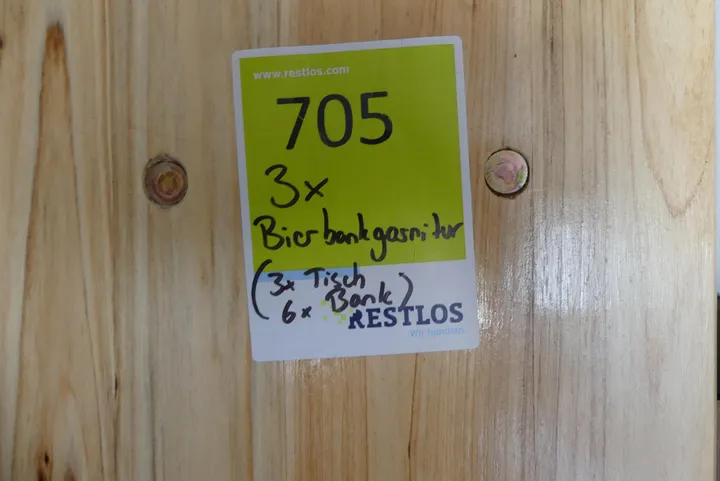 www.restlos.com
705
3x
Bierbankgarnitur
(3x Tisch
6x Bank)
RESTLOS
Wir handeln.